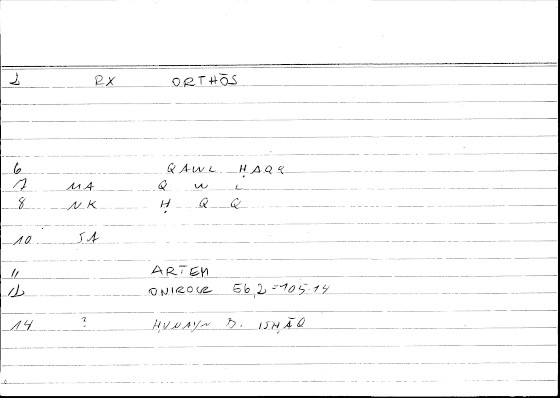 1 RX ORTHŌS
6 QAWL ḤAQQ
7 MA Q W L
8 NK Ḥ Q Q
10 SA
11 ARTEM
12 ONIROCR 56,2=105.14
14 ? ḤUNAYN B. ISḤĀQ